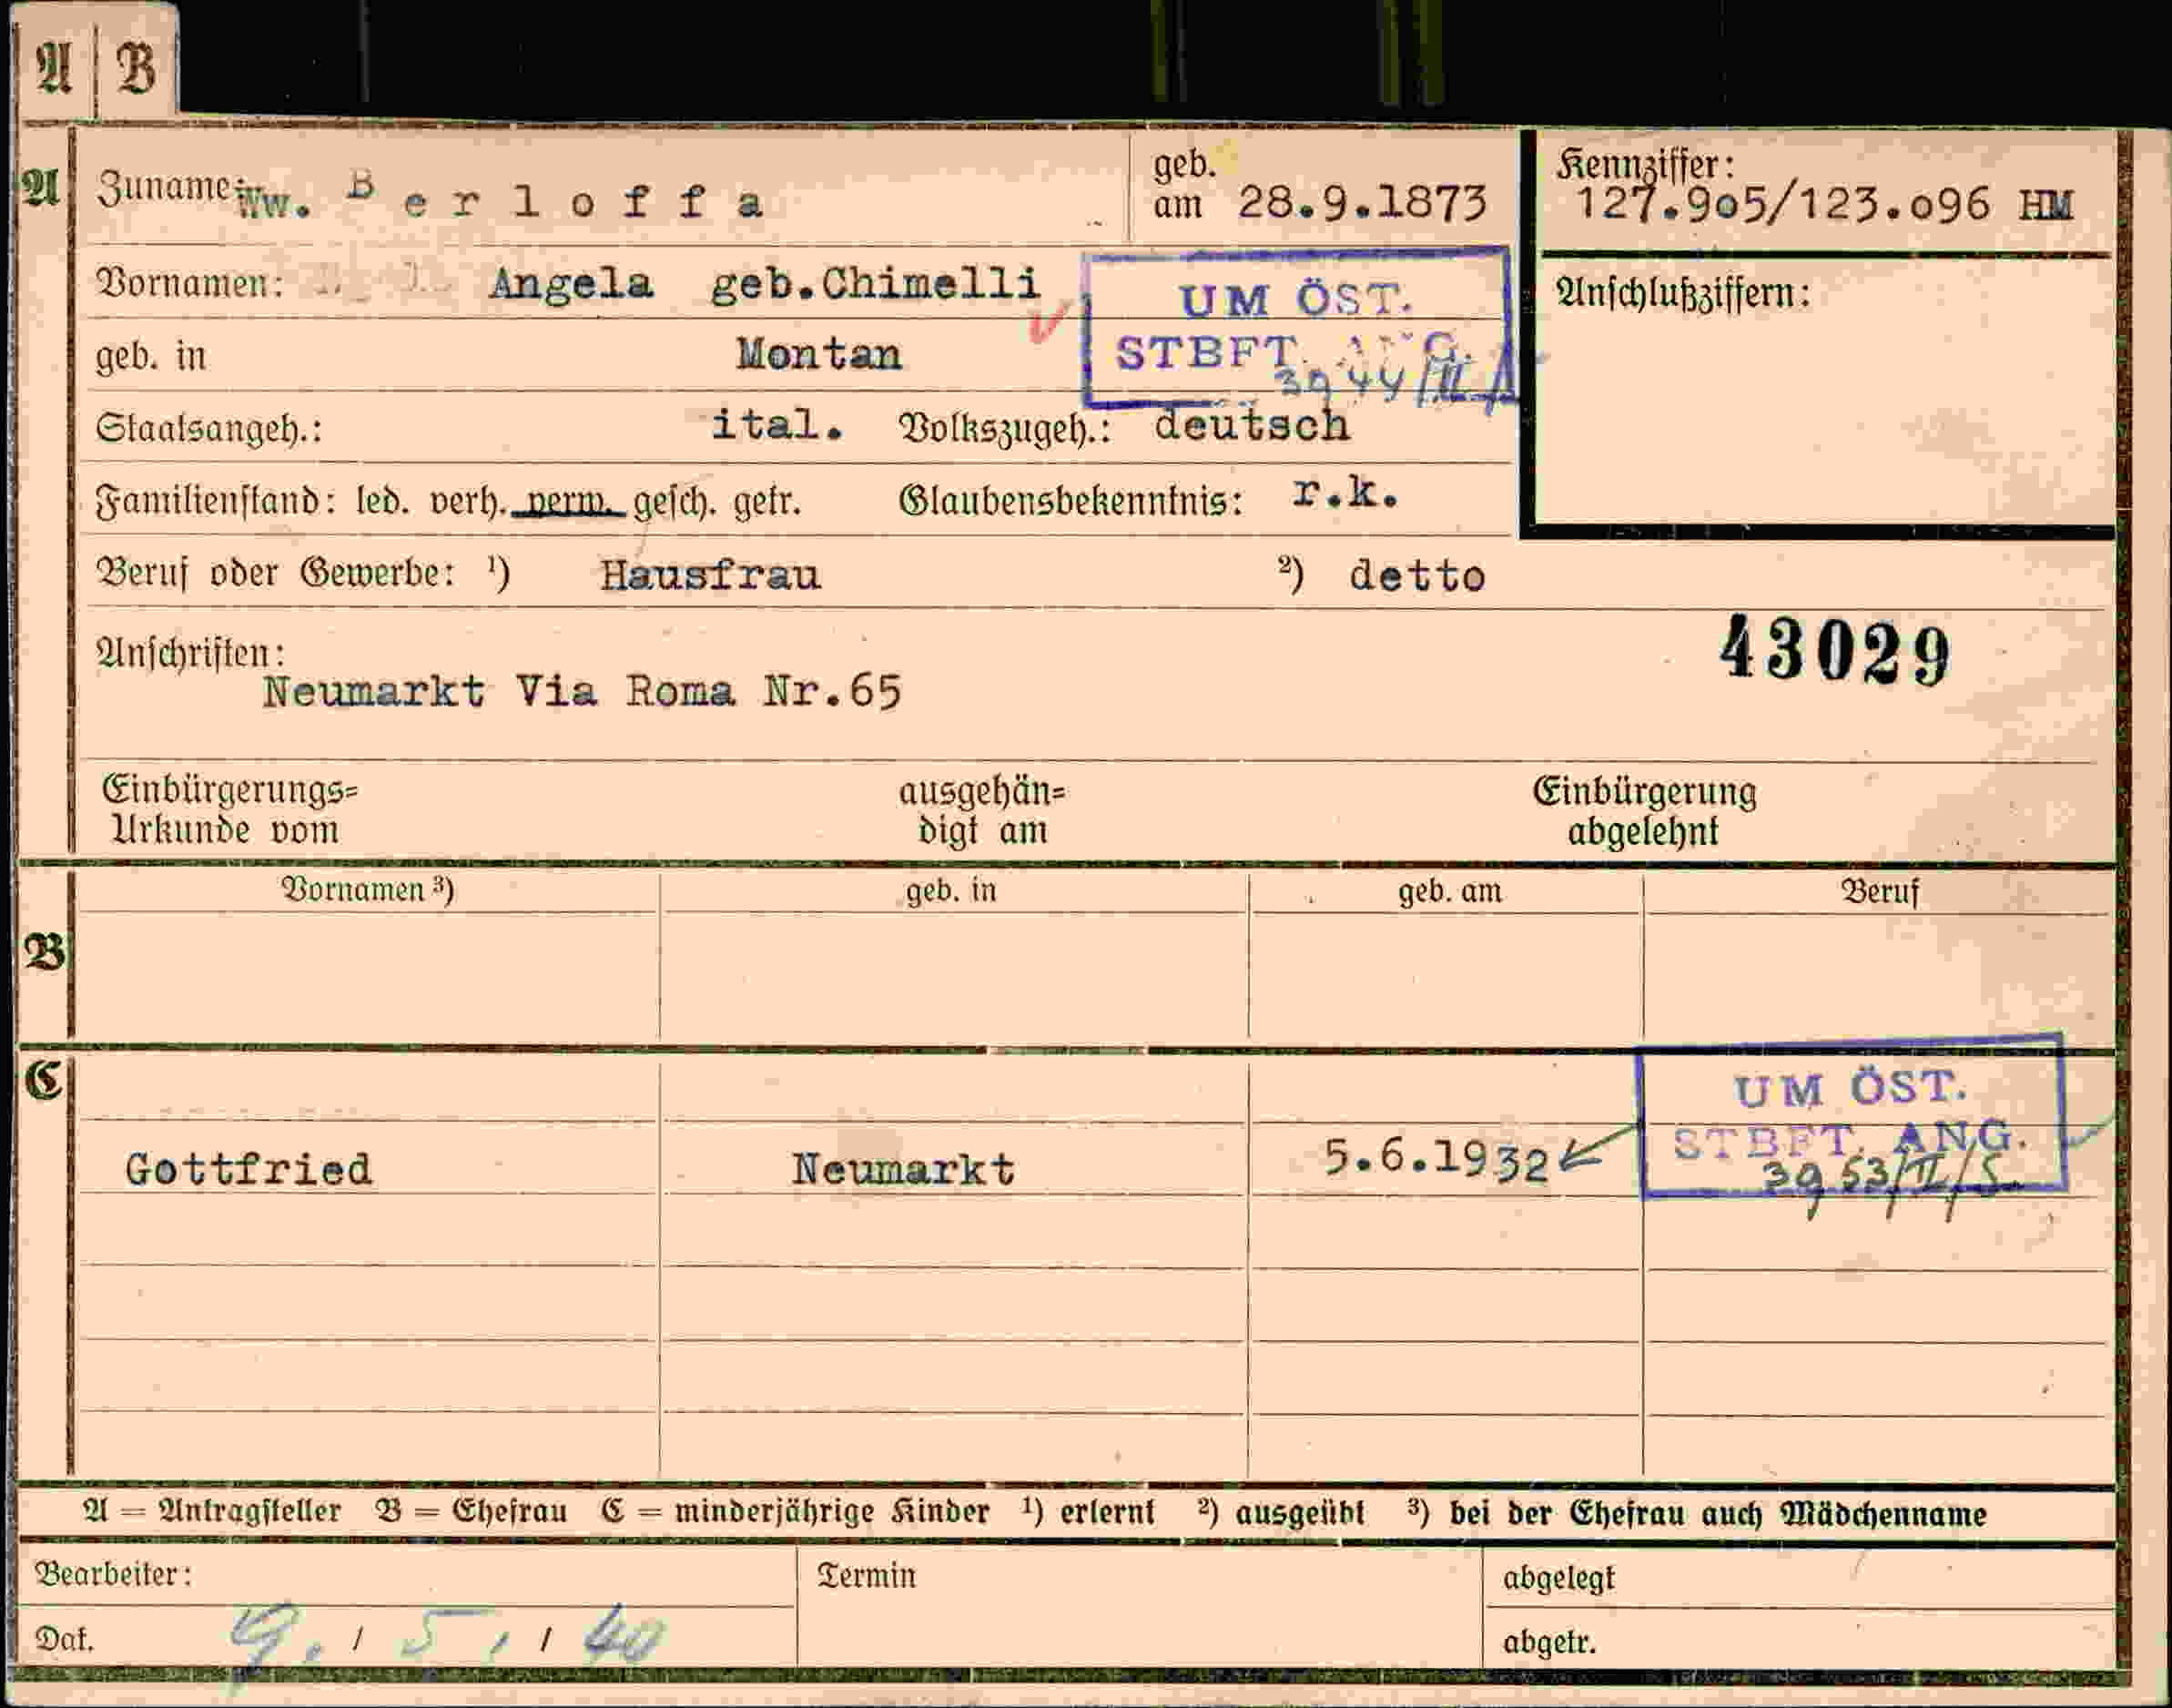 A B
A Zuname: Ww. Berloffa geb. am 28.9.1873 Kennziffer: 127.9o5/123.o96 HM
Vornamen: Angela geb.Chimelli Anschlußziffern:
UM ÖST.
STBFT.
geb. in Montan
Staatsangeh.: ital. Volkszugeh.: deutsch
Familienstand: led. verh. verw. gesch. getr. Glaubensbekenntnis: r.k.
Beruf oder Gewerbe: ¹) Hausfrau ²) detto
43029
Anschriften:
Neumarkt Via Roma Nr.65
Einbürgerungs= Urkunde vom ausgehän= digt am Einbürgerung abgelehnt
B Vornamen ³) geb. in geb. am Beruf
C
UM ÖST.
STBFT. ANG.
3953/II/5
Gottfried Neumarkt 5.6.1932
A = Antragsteller B = Ehefrau C = minderjährige Kinder ¹) erlernt ²) ausgeübt ³) bei der Ehefrau auch Mädchenname
Bearbeiter: Termin abgelegt
Dat. 9. / 5. / 40 abgetr.